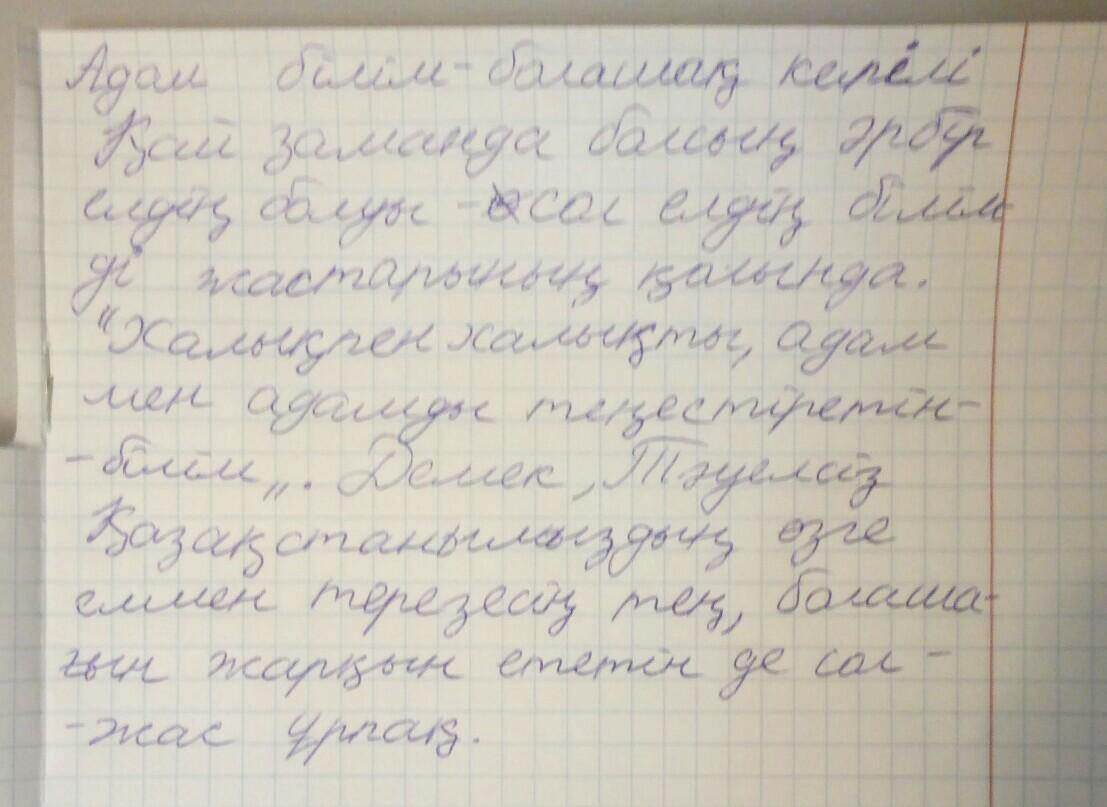 Адам білім-болашақ кепілі
Қай заманда болсың әрбүр
елдің болуы - сол елдің білім
ді жастарының қолында.
"Халықпен халықты, адам
мен адамды теңестіретін-
-білім„. Демек, Тәуелсіз
Қазақстанымыздың өзге
елмен терезесің тең, болаша-
ғын жарқын ететін де сол -
-жас ұрпақ.